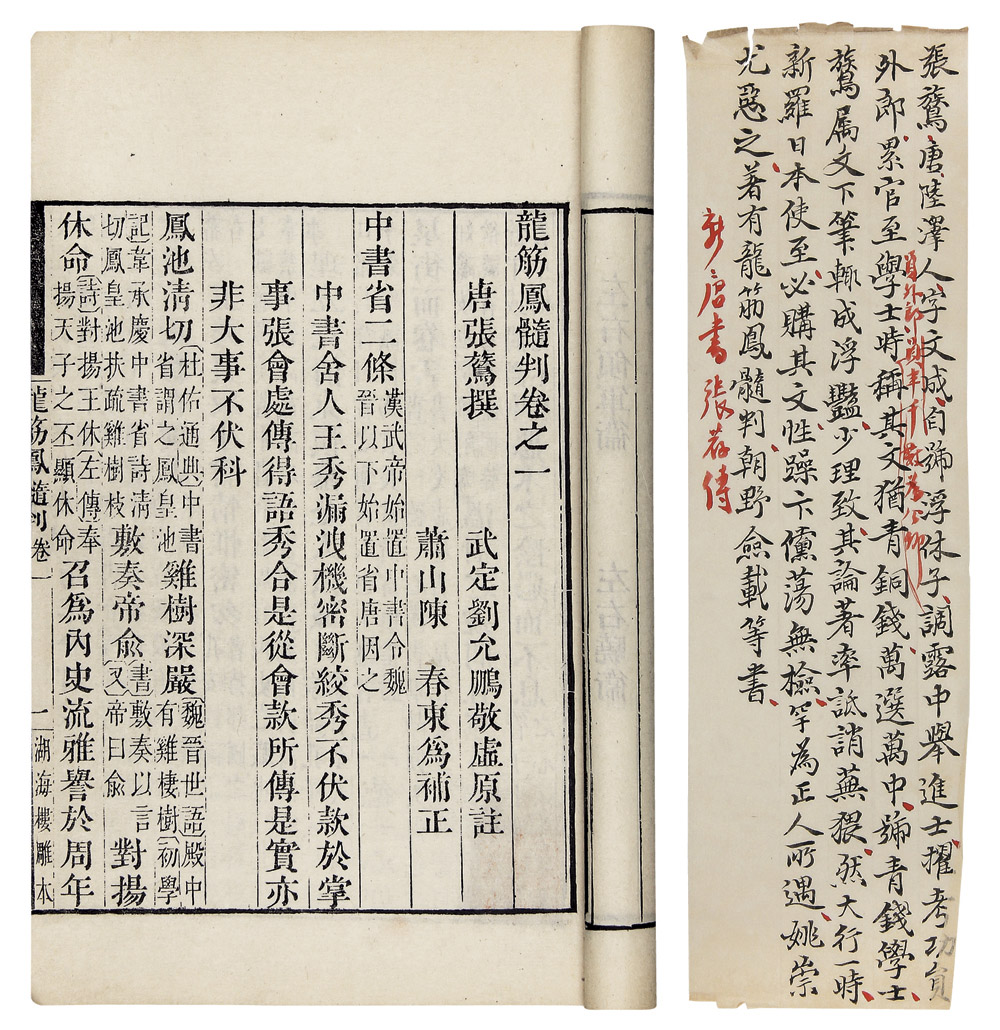 龍筋鳳髓判卷之一
唐張鷟撰　武定劉允鵬敬虛原註
蕭山陳　春東為補正
中書省二條漢武帝始置中書令魏晉以下始置省唐因之
中書舍人王秀漏洩機密斷絞秀不伏款於掌
事張會處傳得語秀合是從會款所傳是實亦
非大事不伏科
鳳池清切杜佑通典中書省謂之鳳皇池雞樹深嚴魏晉世語殿中有雞棲樹初學
記韋承慶中書省詩清切鳳皇池扶疏雞樹枝敷奏帝俞書敷奏以言又帝曰俞對揚
休命詩對揚王休左傳奉揚天子之丕顯休命召爲內史流雅譽於周年
龍筋鳳髓判卷一　一　湖海樓雕本
張鷟唐陸澤人字文成自號浮休子調露中舉進士擢考功員
外郎累官至學士時稱其文猶青銅錢萬選萬中號青錢學士
員外郎員半千數為公卿
鷟屬文下筆輒成浮豔少理致其論著率詆誚蕪猥然大行一時
新羅日本使至必購其文性躁卞儻蕩無檢罕為正人所遇姚崇
尤惡之著有龍筋鳳髓判朝野僉載等書
新唐書張荐傳